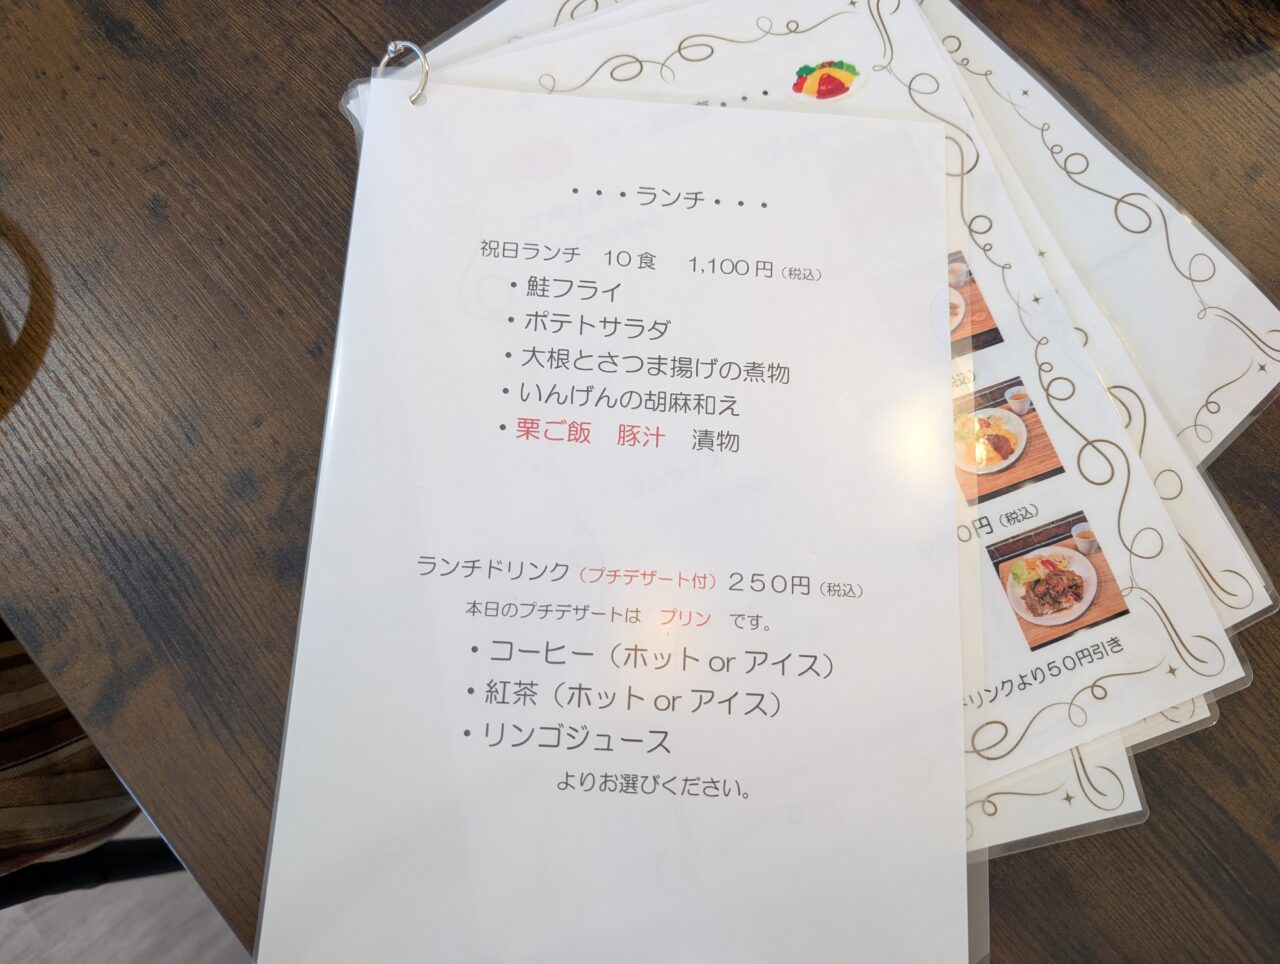 ・・・ランチ・・・
祝日ランチ　10食　1,100円（税込）
・鮭フライ
・ポテトサラダ
・大根とさつま揚げの煮物
・いんげんの胡麻和え
・栗ご飯　豚汁　漬物
ランチドリンク（プチデザート付）２５０円（税込）
本日のプチデザートは　プリン　です。
・コーヒー（ホット or アイス）
・紅茶（ホット or アイス）
・リンゴジュース
よりお選びください。
税込）
0円（税込）
リンクより５０円引き